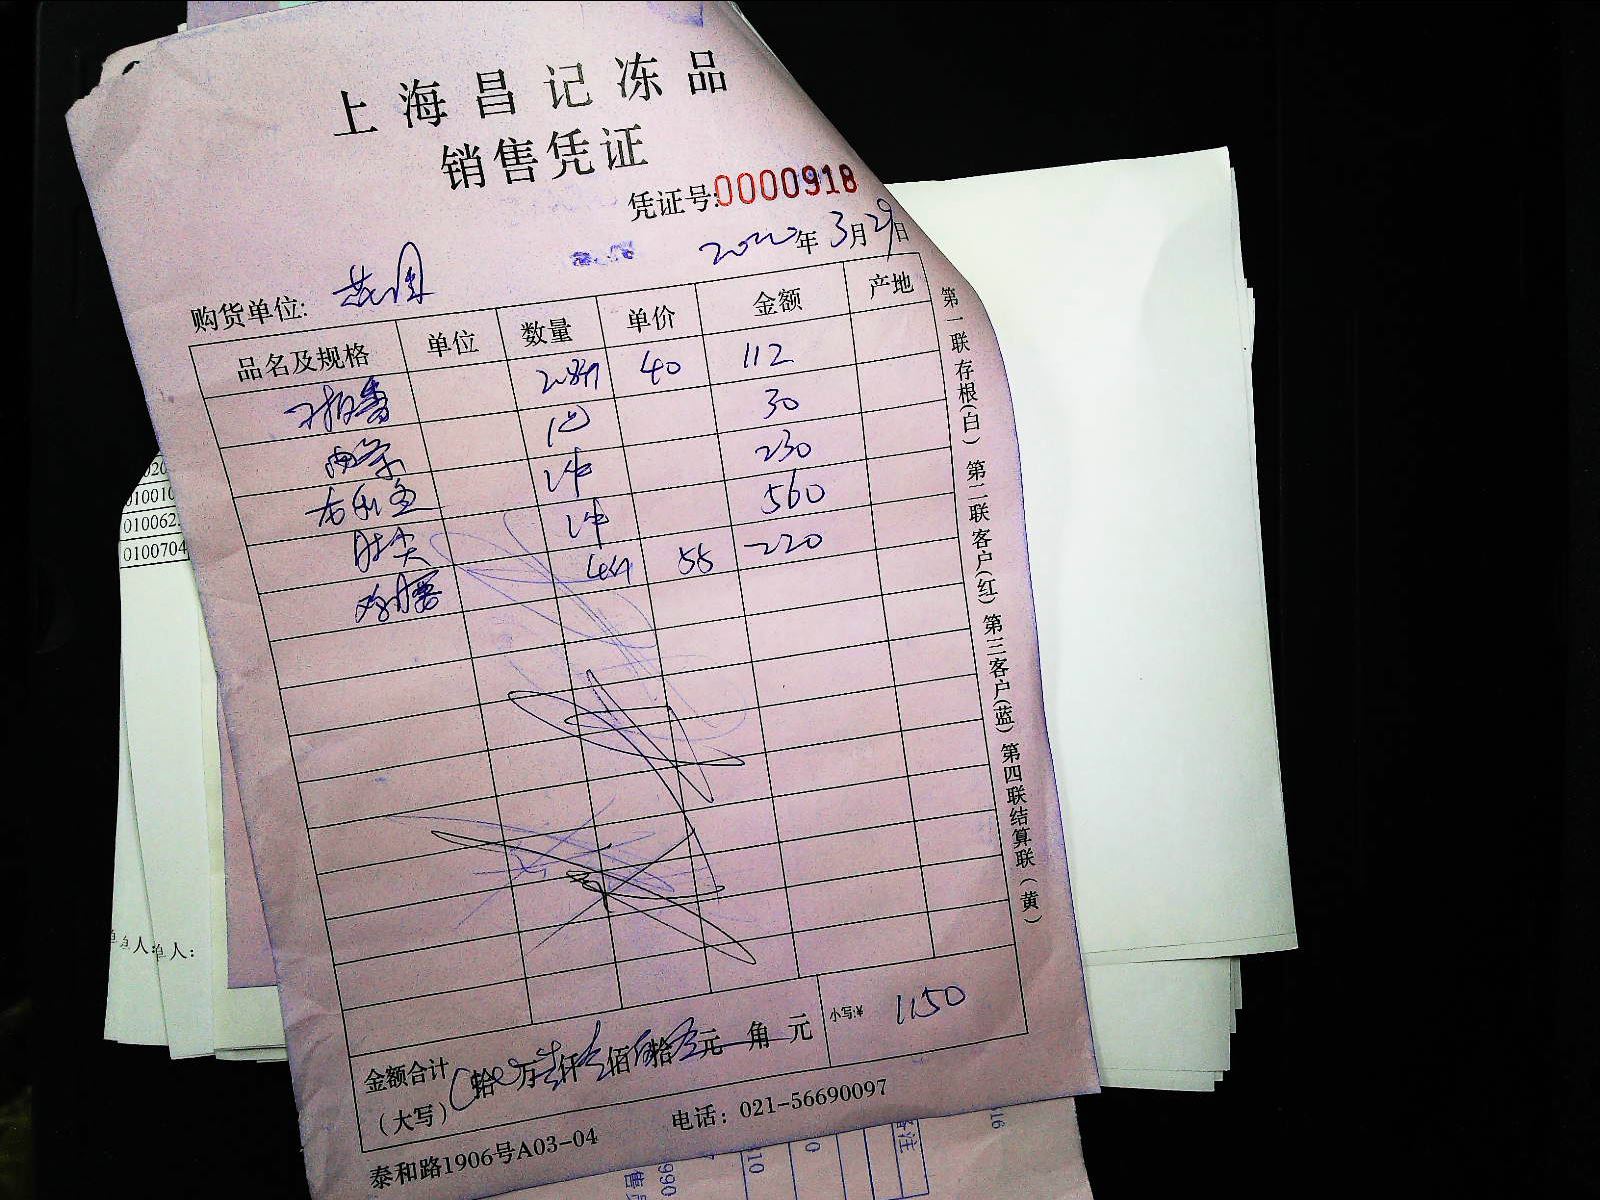 上海昌记冻品
销售凭证
凭证号:0000918
2022年3月29日
购货单位:
品名及规格 单位 数量 单价 金额 产地
2.8斤 40 112
1包 30
1件 230
肚尖 1件 560
4斤 55 220
金额合计 拾 万 仟 佰 拾 元 角 元 小写:¥ 1150
(大写)
泰和路1906号A03-04 电话: 021-56690097
第一联存根(白) 第二联客户(红) 第三客户(蓝) 第四联结算联(黄)
010010
010062
0100704
单人: 单人:
备注